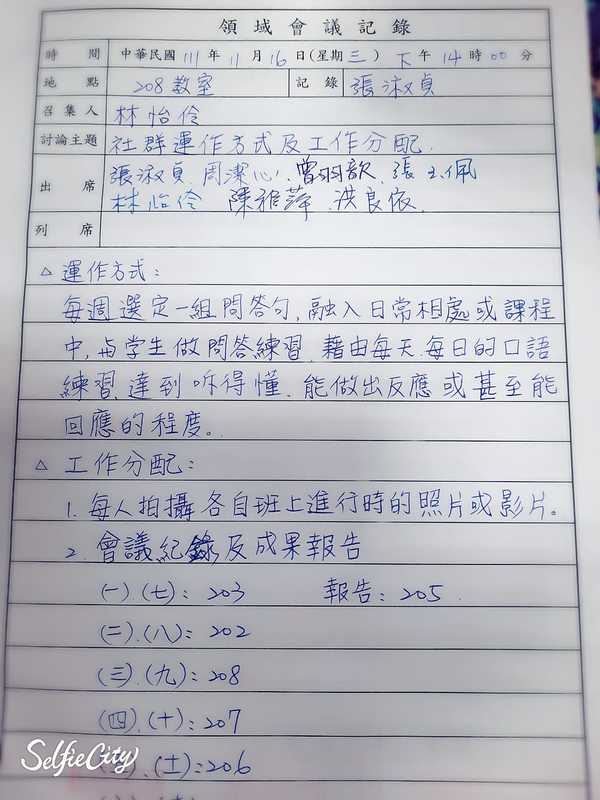 領域會議記錄
時間 中華民國 111 年 11 月 16 日(星期三) 下午 14 時 00 分
地點 208教室 記錄 張淑貞
召集人 林怡伶
討論主題 社群運作方式及工作分配.
出席 張淑貞、周潔心、曾羽歆、張玉佩
林怡伶 陳雅萍、洪良依.
列席
△ 運作方式:
每週選定一組問答句,融入日常相處或課程
中,与學生做問答練習.藉由每天.每日的口語
練習,達到听得懂.能做出反應或甚至能
回應的程度。
△ 工作分配:
1. 每人拍攝各自班上進行時的照片或影片。
2. 會議紀錄及成果報告
(一)(七): 203 報告: 205.
(二).(八): 202
(三).(九): 208
(四).(十): 207
.(十一): 206
SelfieCity